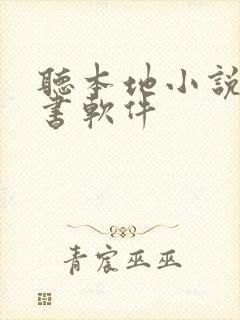 聽本地小說
書軟件
青宸巫巫